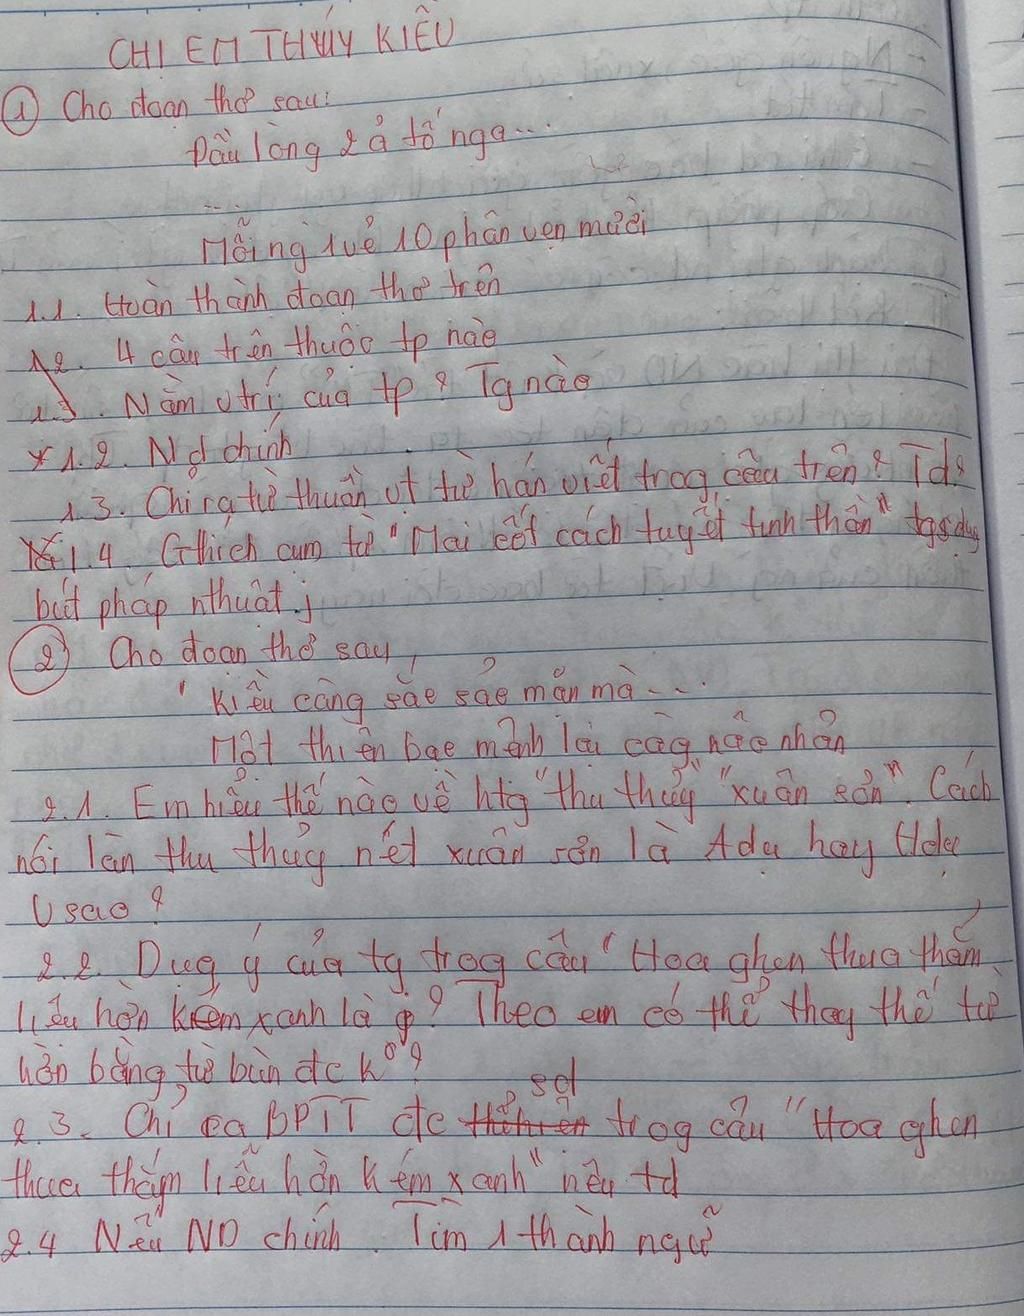 CHI EM THUÝ KIỀU
① Cho đoạn thơ sau:
Đầu lòng 2 ả tố nga...
...
Mỗi ng 1 vẻ 10 phân vẹn mười
1.1. Hoàn thành đoạn thơ trên
1.2. 4 câu trên thuộc tp nào
1.3. Nằm vtrí của tp? Tg nào
* 1.2. Nd chính
1.3. Chỉ ra từ thuần vt từ hán việt trog câu trên? Td?
1.4. Gthích cụm từ "Mai cốt cách tuyết tinh thần" tg sdụg
bút pháp nthuật j
② Cho đoạn thơ sau,
" Kiều càng sắc sảo mặn mà...
Một thiên bạc mệnh lại càg não nhân
2.1. Em hiểu thế nào về htg "thu thuỷ" "xuân sơn". Cách
nói làn thu thuỷ nét xuân sơn là Adụ hay Hdụ
Vsao?
2.2. Dụg ý của tg trog câu "Hoa ghen thua thắm
liễu hờn kém xanh là j? Theo em có thể thay thế từ
hờn bằng từ buồn đc k°?
sd
2.3. Chỉ ra BPTT đc trog câu "Hoa ghen
thua thắm liễu hờn kém xanh" nêu td
2.4 Nêu ND chính. Tìm 1 thành ngữ